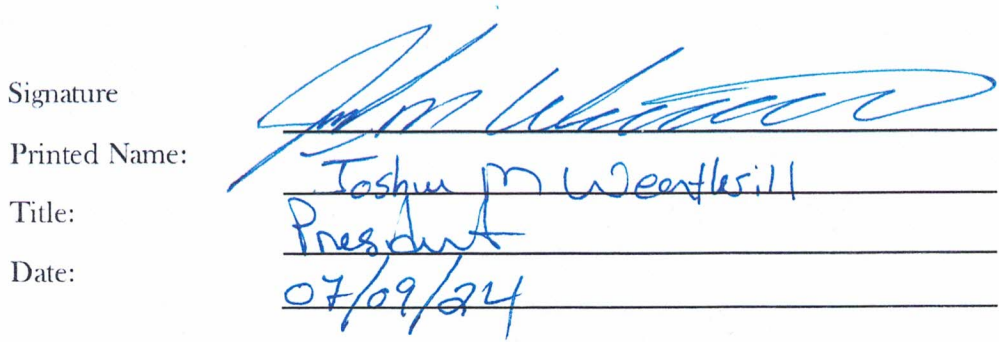 Signature
Printed Name: Joshua M
Title: President
Date: 07/09/24